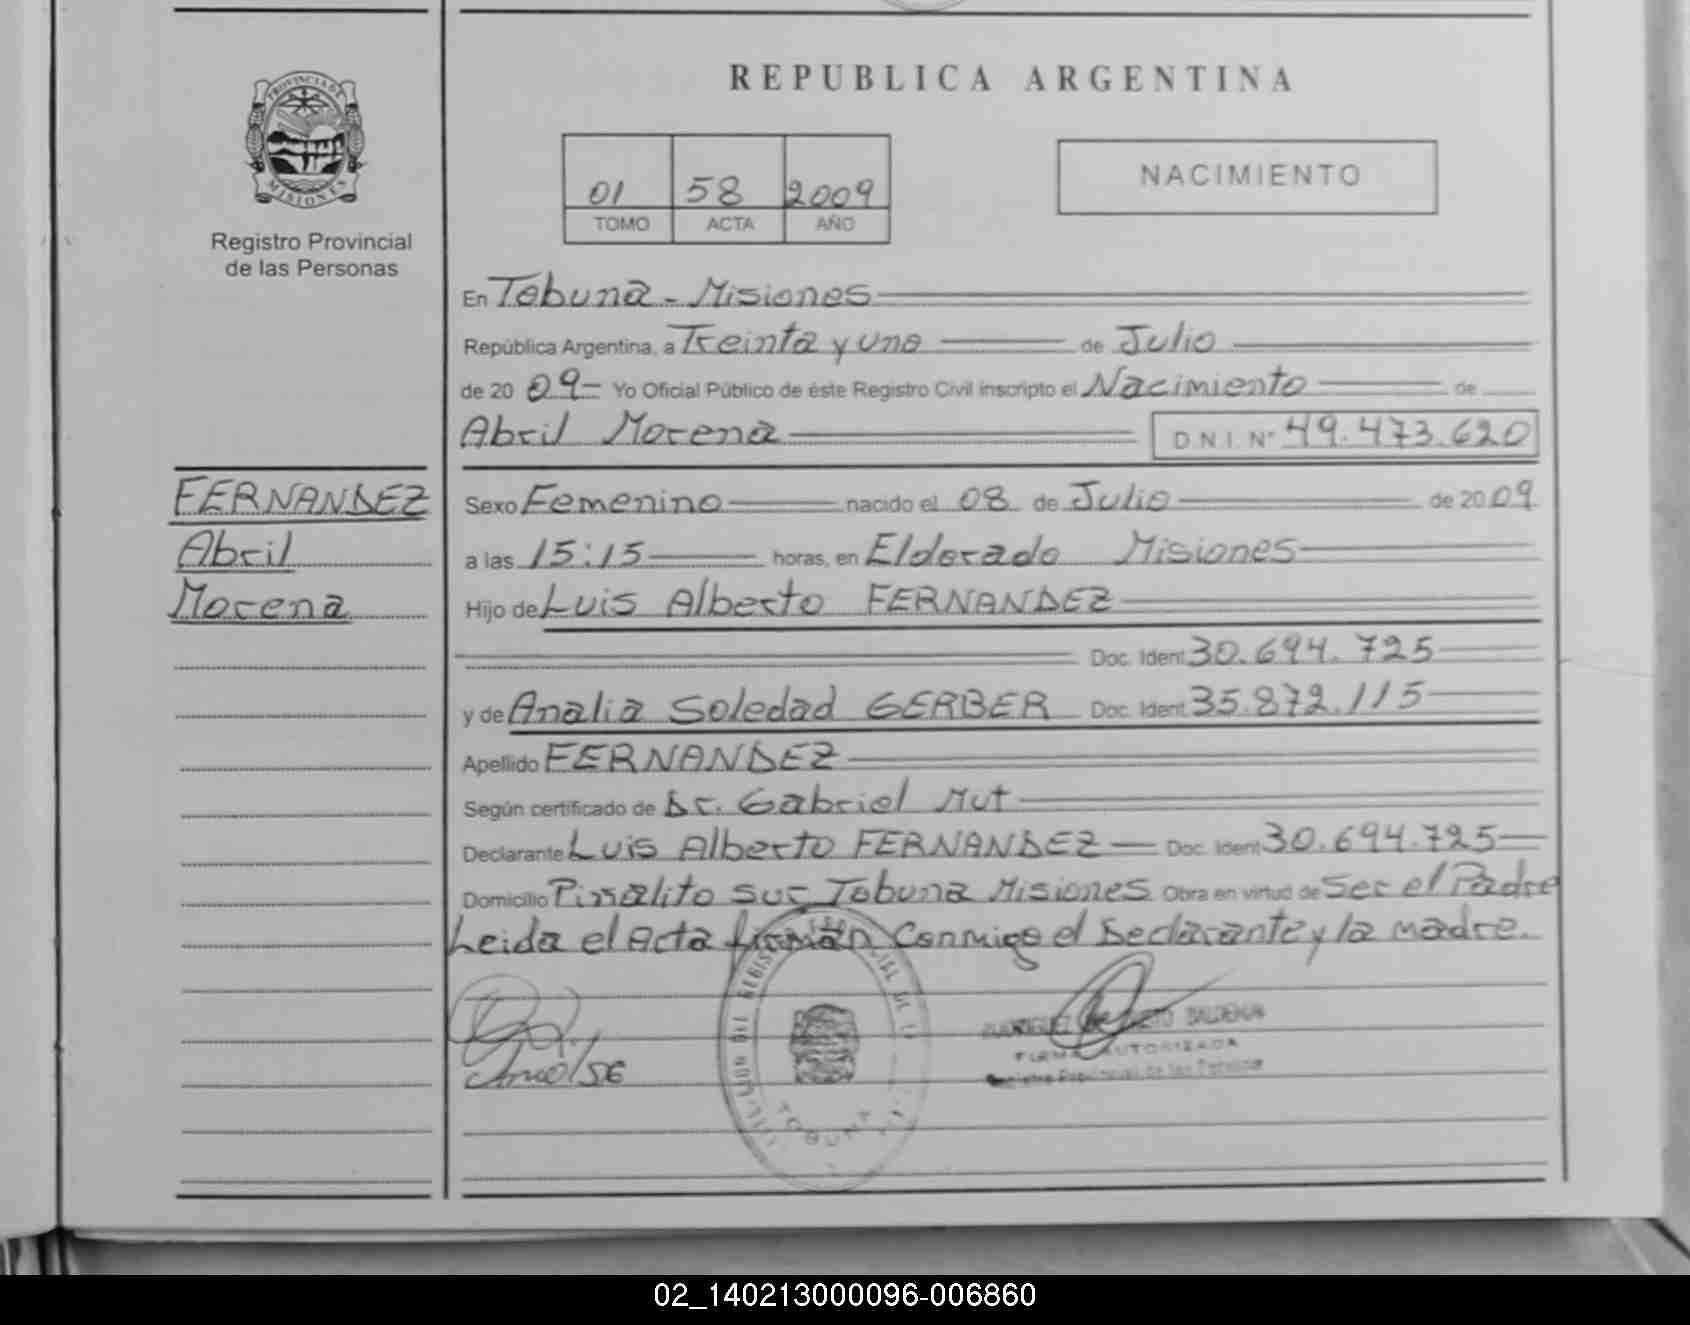 PROVINCIA DE
MISIONES
Registro Provincial
de las Personas
REPUBLICA ARGENTINA
01 58 2009
TOMO ACTA AÑO
NACIMIENTO
En Tobuna - Misiones
República Argentina, a Treinta y uno de Julio
de 20 09 Yo Oficial Público de éste Registro Civil inscripto el Nacimiento de
Abril Morena D.N.I. N° 49.473.620
FERNANDEZ
Abril
Morena
Sexo Femenino nacido el 08 de Julio de 2009
a las 15:15 horas, en Eldorado Misiones
Hijo de Luis Alberto FERNANDEZ
Doc. Ident 30.694.725
y de Analia Soledad GERBER Doc. Ident 35.872.115
Apellido FERNANDEZ
Según certificado de Dr. Gabriel Mut
Declarante Luis Alberto FERNANDEZ Doc. Ident 30.694.725
Domicilio Pinalito Sur Tobuna Misiones Obra en virtud de Ser el Padre
Leida el Acta firman Conmigo el Declarante y la madre.
FIRMA AUTORIZADA
Registro Provincial de las Personas
TOBUNA
02_140213000096-006860